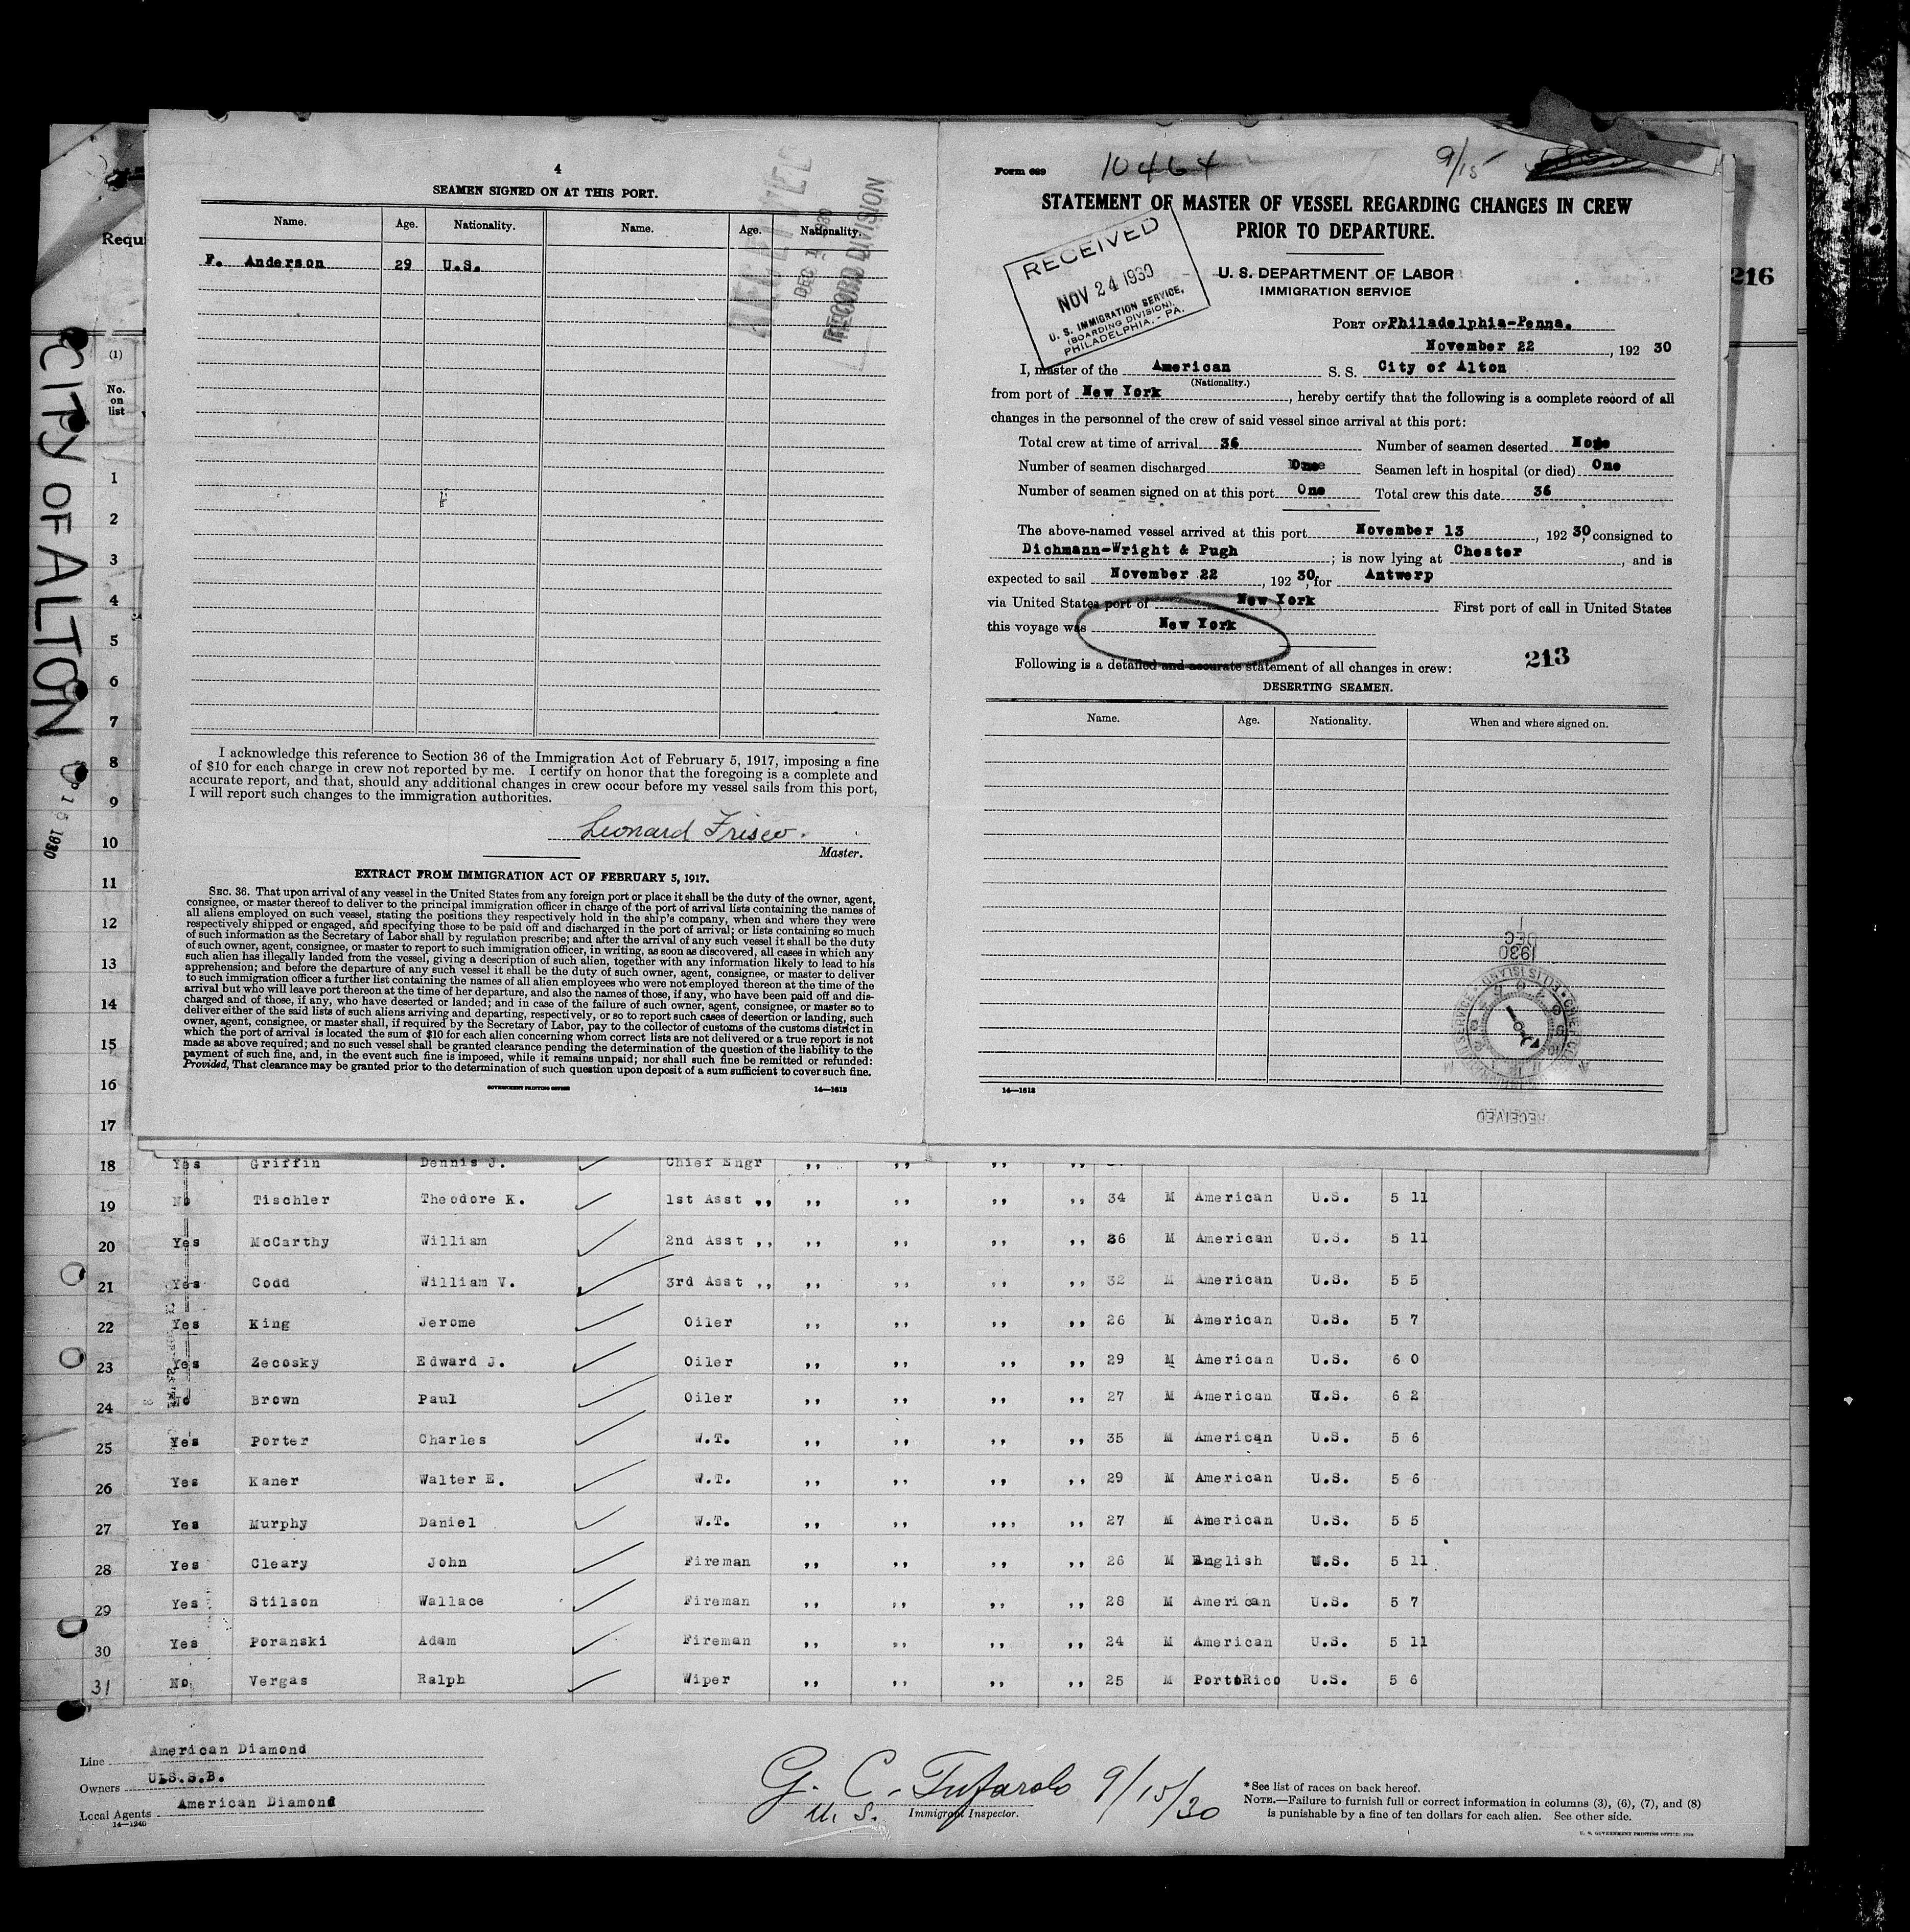 4
SEAMEN SIGNED ON AT THIS PORT.
Name. Age. Nationality. Name. Age. Nationality.
F. Anderson 29 U.S.
RECEIVED
DEC 1930
RECORD DIVISION
I acknowledge this reference to Section 36 of the Immigration Act of February 5, 1917, imposing a fine
of $10 for each charge in crew not reported by me. I certify on honor that the foregoing is a complete and
accurate report, and that, should any additional changes in crew occur before my vessel sails from this port,
I will report such changes to the immigration authorities.
Leonard Frisco.
Master.
EXTRACT FROM IMMIGRATION ACT OF FEBRUARY 5, 1917.
SEC. 36. That upon arrival of any vessel in the United States from any foreign port or place it shall be the duty of the owner, agent,
consignee, or master thereof to deliver to the principal immigration officer in charge of the port of arrival lists containing the names of
all aliens employed on such vessel, stating the positions they respectively hold in the ship's company, when and where they were
respectively shipped or engaged, and specifying those to be paid off and discharged in the port of arrival; or lists containing so much
of such information as the Secretary of Labor shall by regulation prescribe; and after the arrival of any such vessel it shall be the duty
of such owner, agent, consignee, or master to report to such immigration officer, in writing, as soon as discovered, all cases in which any
such alien has illegally landed from the vessel, giving a description of such alien, together with any information likely to lead to his
apprehension; and before the departure of any such vessel it shall be the duty of such owner, agent, consignee, or master to deliver
to such immigration officer a further list containing the names of all alien employees who were not employed thereon at the time of the
arrival but who will leave port thereon at the time of her departure, and also the names of those, if any, who have been paid off and dis-
charged and of those, if any, who have deserted or landed; and in case of the failure of such owner, agent, consignee, or master so to
deliver either of the said lists of such aliens arriving and departing, respectively, or so to report such cases of desertion or landing, such
owner, agent, consignee, or master shall, if required by the Secretary of Labor, pay to the collector of customs of the customs district in
which the port of arrival is located the sum of $10 for each alien concerning whom correct lists are not delivered or a true report is not
made as above required; and no such vessel shall be granted clearance pending the determination of the question of the liability to the
payment of such fine, and, in the event such fine is imposed, while it remains unpaid; nor shall such fine be remitted or refunded:
Provided, That clearance may be granted prior to the determination of such question upon deposit of a sum sufficient to cover such fine.
GOVERNMENT PRINTING OFFICE 14—1613
Form 689 10464 9/15
STATEMENT OF MASTER OF VESSEL REGARDING CHANGES IN CREW
PRIOR TO DEPARTURE.
RECEIVED
NOV 24 1930
U. S. IMMIGRATION SERVICE,
(BOARDING DIVISION),
PHILADELPHIA, - PA.
U. S. DEPARTMENT OF LABOR
IMMIGRATION SERVICE
216
PORT OF Philadelphia-Penna.
November 22, 192 30
I, master of the American S. S. City of Alton
(Nationality.)
from port of New York, hereby certify that the following is a complete record of all
changes in the personnel of the crew of said vessel since arrival at this port:
Total crew at time of arrival 36 Number of seamen deserted None
Number of seamen discharged One Seamen left in hospital (or died) One
Number of seamen signed on at this port One Total crew this date 36
The above-named vessel arrived at this port November 13, 192 30, consigned to
Dichmann-Wright & Pugh; is now lying at Chester, and is
expected to sail November 22, 192 30, for Antwerp
via United States port of New York First port of call in United States
this voyage was New York
Following is a detailed and accurate statement of all changes in crew: 213
DESERTING SEAMEN.
Name. Age. Nationality. When and where signed on.
DEC
1930
ELLIS ISLAND
RECEIVED
14—1613
Requi
(1)
No.
on
list
CITY OF ALTON
1930
1
2
3
4
5
6
7
8
9
10
11
12
13
14
15
16
17
18 Yes Griffin Dennis J. Chief Engr ,, ,, ,, ,,
19 No Tischler Theodore K. 1st Asst ,, ,, ,, ,, ,, 34 M American U.S. 5 11
20 Yes McCarthy William 2nd Asst ,, ,, ,, ,, ,, 36 M American U.S. 5 11
21 Yes Codd William V. 3rd Asst ,, ,, ,, ,, ,, 32 M American U.S. 5 5
22 Yes King Jerome Oiler ,, ,, ,, ,, 26 M American U.S. 5 7
23 Yes Zecosky Edward J. Oiler ,, ,, ,, ,, 29 M American U.S. 6 0
24 No Brown Paul Oiler ,, ,, ,, ,, 27 M American U.S. 6 2
25 Yes Porter Charles W.T. ,, ,, ,, ,, 35 M American U.S. 5 6
26 Yes Kaner Walter E. W.T. ,, ,, ,, ,, 29 M American U.S. 5 6
27 Yes Murphy Daniel W.T. ,, ,, ,,, ,, 27 M American U.S. 5 5
28 Yes Cleary John Fireman ,, ,, ,, ,, 26 M English U.S. 5 11
29 Yes Stilson Wallace Fireman ,, ,, ,, ,, 28 M American U.S. 5 7
30 Yes Poranski Adam Fireman ,, ,, ,, ,, 24 M American U.S. 5 11
31 No Vergas Ralph Wiper ,, ,, ,, ,, 25 M PortoRico U.S. 5 6
Line American Diamond
Owners U.S.S.B.
Local Agents American Diamond
14—1240
G. C. Tufarolo 9/15/30
U. S. Immigrant Inspector.
*See list of races on back hereof.
NOTE.—Failure to furnish full or correct information in columns (3), (6), (7), and (8)
is punishable by a fine of ten dollars for each alien. See other side.
U. S. GOVERNMENT PRINTING OFFICE: 1929